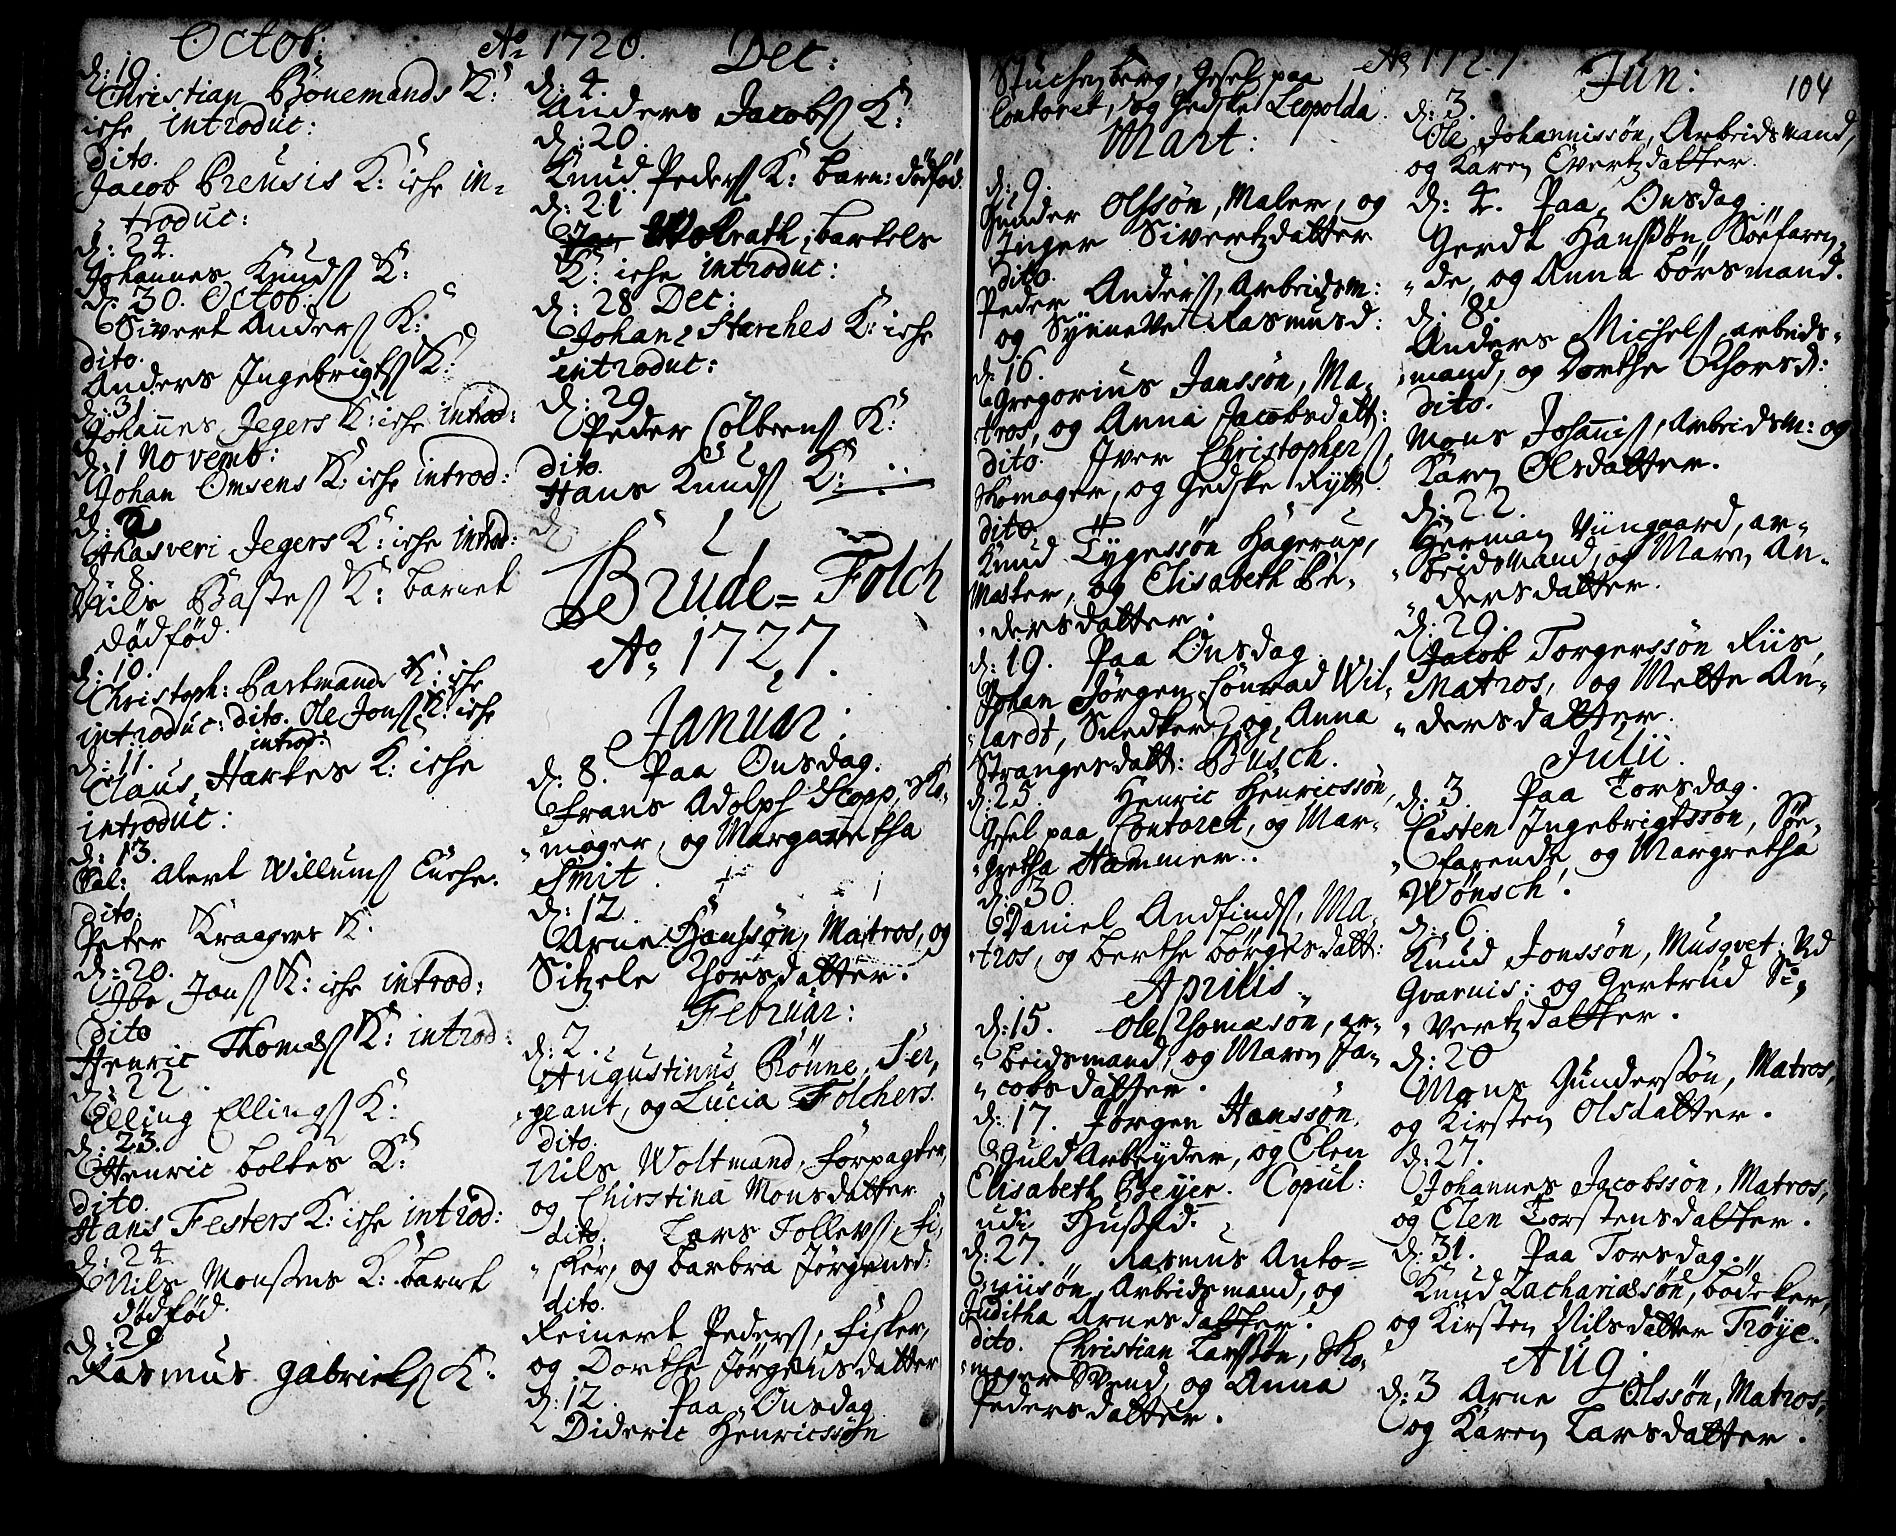 Octob: Aº 1726. Dec:
d: 19.
Christian Bönemands K:
iche introduc:
dito.
Jacob Preusis K: iche in-
troduc:
d: 24.
Johannes Knuds K:
d: 30. Octob:
Sivert Anders K:
dito.
Anders Ingebrigts K:
d: 31
Johannes Jegers K: iche introd:
d: 1 Novemb:
Johan Omsens K: iche introd:
d: 2
Hasveri Jegers K: iche introd:
d: 8.
Nils Bastes K: barnet
dödfød.
d: 10.
Christoph: Bartmands K: iche
introduc: dito. Ole Jons K: iche
introd:
d: 11.
Claus Harkes K: iche
introduc:
d: 13.
Sal: Alert Willums Enche.
dito.
Peter Kraagers K.
d: 20.
Ibe Jans K: iche introd:
dito
Henric Thomæs K: introd:
d: 22.
Elling Ellings K:
d: 23.
Henric Boltes K:
dito.
Hans Festers K: iche introd:
d: 24
Nils Monssens K: barnet
dödfød.
d: 29
Rasmus Gabriels K:
d: 4.
Anders Jacobs K:
d: 20.
Knud Peders K: barn: dödfød
d: 21
Wolrath Bartels
K: iche introduc:
d: 28 Dec:
Johan Starches K: iche
introduc:
d: 29
Peder Colbens K:
dito.
Hans Knuds K:
d
Brude=Folch
Aº 1727.
Januar:
d: 8. Paa Onsdag.
Frans Adolph Stopp, Sko-
mager, og Margaretha
Smit.
d: 12.
Arne Hanssøn, Matros, og
Sitzele Thorsdatter.
Februar:
d: 2.
Augustinus Rönne, Ser-
geant, og Lucia Folchers.
dito.
Nils Woltmand, Forpagter,
og Chirstina Monsdatter
dito. Lars Tollevs, Fi-
sker, og Barbra Jørgensd:
dito.
Reinert Peders, Fisker,
og Dorthe Jørgensdatter
d: 12. Paa Onsdag
Dideric Henricssøn
Aº 1727 Jun: 104
Stuchenberg, Gesel paa
Contoret, og Gedske Leopolda.
Mart:
d: 9.
Gunder Olssøn, Maler, og
Inger Sivertzdatter
dito.
Peder Anders, Arbeidsm:
og Synneve Rasmusd:
d: 16.
Gregorius Janssøn, Ma-
tros, og Anna Jacobsdatt:
dito. Iver Christophers,
Skomager, og Gedske Rytt
dito.
Knud Tygessøn Hagerup,
Master, og Elisabeth Pe-
dersdatter.
d: 19. Paa Onsdag.
Johan Jørgen Conrad Wil-
lardt, Snedker, og Anna
Strangesdatt: Busch.
d: 25. Henric Henricssøn,
Gesel paa Contoret, og Mar-
gretha Hammer.
d: 30.
Daniel Andfinds, Ma-
tros, og Berthe Børgesdatt:
Aprilis.
d: 15. Ole Thomæsøn, ar-
beidsmand, og Maren Ja-
cobsdatter.
d: 17. Jørgen Hanssøn,
Guld Arbeyder, og Elen
Elisabeth Beyer. Copul:
udi Huset.
d: 27. Rasmus Anto-
niisøn, Arbeidsmand, og
Juditha Arnesdatter.
dito. Christian Larssøn, Sko-
mager Svend, og Anna
Pedersdatter.
d: 3.
Ole Johannissøn, Arbeidsmand,
og Karen Evertzdatter.
d: 4. Paa Onsdag
Gerdt Hanssøn, Søefaren-
de, og Anna Børsmand.
d: 8.
Anders Michels, arbeids-
mand, og Dorthe Thorsd:
dito.
Mons Johannis, Arbeidsm: og
Karen Olsdatter.
d: 22.
Herman Viingaard, ar-
beidsmand, og Maren An-
dersdatter.
d: 29.
Jacob Torgerssøn Riis,
Matros, og Mette An-
dersdatter.
Julii.
d: 3. Paa Torsdag.
Casten Ingebrigtssøn, Søe-
farende, og Margretha
Wönsch.
d: 6.
Knud Jonssøn, Musqvet: Ved
Gvarnis: og Gertrud Si-
vertzdatter.
d: 20
Mons Gunderssøn, Matros,
og Kirsten Olsdatter.
d: 27.
Johannes Jacobssøn, Matros,
og Elen Torstensdatter.
d: 31. Paa Torsdag.
Knud Zachariæsøn, bødeker,
og Kirsten Nilsdatter Trøye.
Aug.
d: 3 Arne Olssøn, Matros,
og Karen Larsdatter.